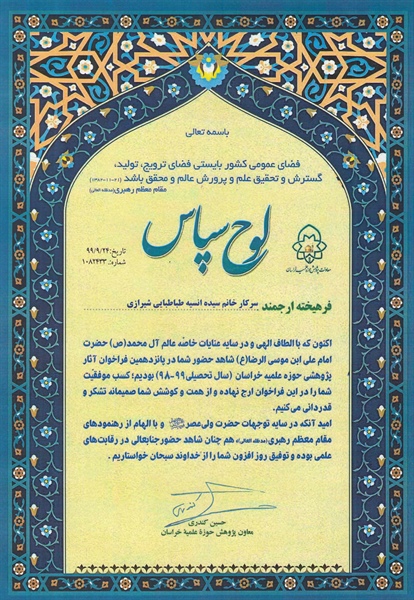 باسمه تعالی
فضای عمومی کشور بایستی فضای ترویج، تولید،
گسترش و تحقیق علم و پرورش عالم و محقق باشد
مقام معظم رهبری (مدظله العالی)
لوح سپاس
تاریخ: ۹۹/۹/۲۴
شماره: ۱۰۸۲۴۳۳
فرهیخته ارجمند سرکار خانم سیده انسیه طباطبایی شیرازی
اکنون که با الطاف الهی و در سایه عنایات خاصّه عالم آل محمد(ص) حضرت
امام علی ابن موسی الرضا(ع) شاهد حضور شما در پانزدهمین فراخوان آثار
پژوهشی حوزه علمیه خراسان (سال تحصیلی ۹۹-۹۸) بودیم؛ کسب موفقیت
شما را در این فراخوان ارج نهاده و از همت و کوشش شما صمیمانه تشکر و
قدردانی می‌کنیم.
امید آنکه در سایه توجهات حضرت ولی‌عصر و با الهام از رهنمودهای
مقام معظم رهبری (مدظله العالی) هم چنان شاهد حضور جنابعالی در رقابت‌های
علمی بوده و توفیق روز افزون شما را از خداوند سبحان خواستاریم.
حسین کندری
معاون پژوهش حوزهٔ علمیهٔ خراسان